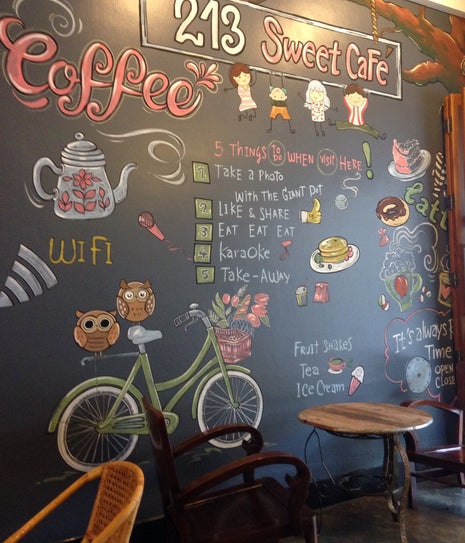 213 Sweet Café
Coffee
5 Things to do when visit here!
1 Take a photo
with the Giant Dot
2 Like & Share
3 Eat Eat Eat
4 Karaoke
5 Take-Away
WiFi
Fruit Shakes
Tea
Ice Cream
It's always
Time
Open
Close